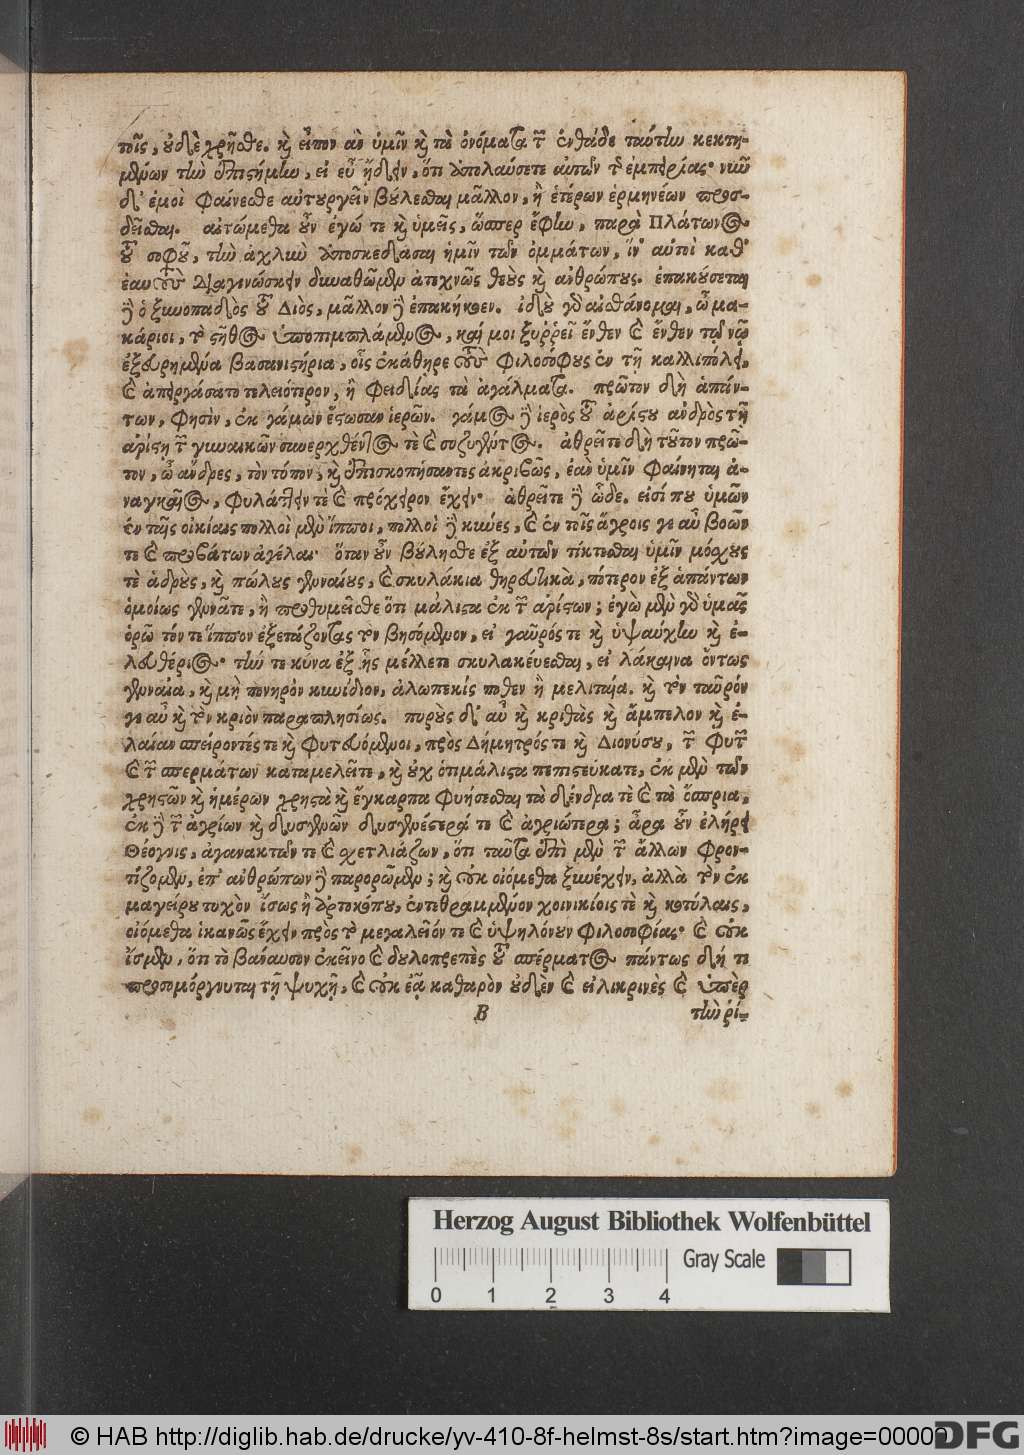 τοῖς, οὐδὲ χρῆσθε. καὶ εἶπον ἂν ὑμῖν καὶ τὰ ὀνόματα τῶν ἐνθάδε ταύτην κεκτη-
μένων τὴν ἐπιστήμην, εἰ εὖ ᾔδειν, ὅτι ἀπολαύσετε αὐτῶν τῆς ἐμπειρίας· νῦν
δ' ἐμοὶ φαίνεσθε αὐτουργεῖν βούλεσθαι μᾶλλον, ἢ ἑτέρων ἑρμηνέων προσ-
δεῖσθαι. αἰτώμεθα οὖν ἐγώ τε καὶ ὑμεῖς, ὥσπερ ἔφην, παρὰ Πλάτωνος
τοῦ σοφοῦ, τὴν ἀχλὺν ἀποσκεδάσαι ἡμῖν τῶν ὀμμάτων, ἵν' αὐτοὶ καθ'
ἑαυτοὺς διαγινώσκειν δυναθῶμεν ἀτεχνῶς θεοὺς καὶ ἀνθρώπους. ἐπακούσεται
δὲ ὁ ξυνοπαδὸς τοῦ Διὸς, μᾶλλον δὲ ἐπακήκοεν. ἰδοὺ γὰρ αἰσθάνομαι, ὦ μα-
κάριοι, τὸ στῆθος ὑποπιμπλάμενος, καί μοι ξυρρεῖ ἔνθεν καὶ ἔνθεν τῷ νῷ
ἐξευρημένα βασανιστήρια, οἷς ἐκάθηρε τοὺς φιλοσόφους ἐν τῇ καλλιπόλει,
καὶ ἀπειργάσατο τελειότερον, ἢ Φειδίας τὰ ἀγάλματα. πρῶτον δὴ ἁπάν-
των, φησὶν, ἐκ γάμων ἔστωσαν ἱερῶν. γάμος δὲ ἱερὸς τοῦ ἀρίστου ἀνδρὸς τῇ
ἀρίστῃ τῶν γυναικῶν συνερχθέντος τὲ καὶ συζυγέντος. ἀθρεῖτε δὴ τοῦτον πρῶ-
τον, ὦ ἄνδρες, τὸν τόπον, καὶ ἐπισκοπήσαντες ἀκριβῶς, ἐὰν ὑμῖν φαίνηται ἀ-
ναγκαῖος, φυλάττειν τὲ καὶ πρόχειρον ἔχειν· ἀθρεῖτε δὲ ὧδε. εἰσί που ὑμῶν
ἐν ταῖς οἰκίαις πολλοὶ μὲν ἵπποι, πολλοὶ δὲ κύνες, καὶ ἐν τοῖς ἀγροῖς γε αὖ βοῶν
τε καὶ προβάτων ἀγέλαι· ὅταν οὖν βούλησθε ἐξ αὐτῶν τίκτεσθαι ὑμῖν μόσχους
τὲ ἁδροὺς, καὶ πώλους γενναίους, καὶ σκυλάκια θηρευτικὰ, πότερον ἐξ ἁπάντων
ὁμοίως γεννᾶτε, ἢ προθυμεῖσθε ὅτι μάλιστα ἐκ τῶν ἀρίστων; ἐγὼ μὲν γὰρ ὑμᾶς
ὁρῶ τόν τε ἵππον ἐξετάζοντας τὸν βησόμενον, εἰ γαῦρός τε καὶ ὑψαύχην καὶ ἐ-
λευθέριος· τήν τε κύνα ἐξ ἧς μέλλετε σκυλακεύεσθαι, εἰ λάκαινα ὄντως
γενναία, καὶ μὴ πονηρὸν κυνίδιον, ἀλωπεκίς ποθεν ἢ μελιταία. καὶ τὸν ταῦρόν
γε αὖ καὶ τὸν κριὸν παραπλησίως. πυροὺς δ' αὖ καὶ κριθὰς καὶ ἄμπελον καὶ ἐ-
λαίαν σπείροντές τε καὶ φυτευόμενοι, πρὸς Δήμητρός τε καὶ Διονύσου, τῶν φυτῶν
καὶ τῶν σπερμάτων καταμελεῖτε, καὶ οὐχ ὁτιμάλιστα πεπιστεύκατε, ἐκ μὲν τῶν
χρηστῶν καὶ ἡμέρων χρηστὰ καὶ ἔγκαρπα φυήσεσθαι τὰ δένδρα τὲ καὶ τὰ ὄσπρια,
ἐκ δὲ τῶν ἀγρίων καὶ δυσγενῶν δυσγενέστερά τε καὶ ἀγριώτερα; ἆρα οὖν ἐλήρει
Θέογνις, ἀγανακτῶν τε καὶ σχετλιάζων, ὅτι ταῦτα ἐπὶ μὲν τῶν ἄλλων φρον-
τίζομεν, ἐπ' ἀνθρώπων δὲ παρορῶμεν; καὶ οὐκ οἰόμεθα ξυνέχειν, ἀλλὰ τὸν ἐκ
μαγείρου τυχὸν ἴσως ἢ ἀρτοκόπου, ἐντεθραμμένον χοινικίοις τὲ καὶ κοτύλαις,
οἰόμεθα ἱκανῶς ἔχειν πρὸς τὸ μεγαλεῖόν τε καὶ ὑψηλόνουν φιλοσοφίας· καὶ οὐκ
ἴσμεν, ὅτι τὸ βάναυσον ἐκεῖνο καὶ δουλοπρεπὲς τοῦ σπέρματος πάντως δή τι
προσομόργνυται τῇ ψυχῇ, καὶ οὐκ ἐᾷ καθαρὸν οὐδὲν καὶ εἰλικρινὲς καὶ ὑπὲρ
B τὴν ῥί-
Herzog August Bibliothek Wolfenbüttel
Gray Scale
0 1 2 3 4
© HAB http://diglib.hab.de/drucke/yv-410-8f-helmst-8s/start.htm?image=00009
DFG